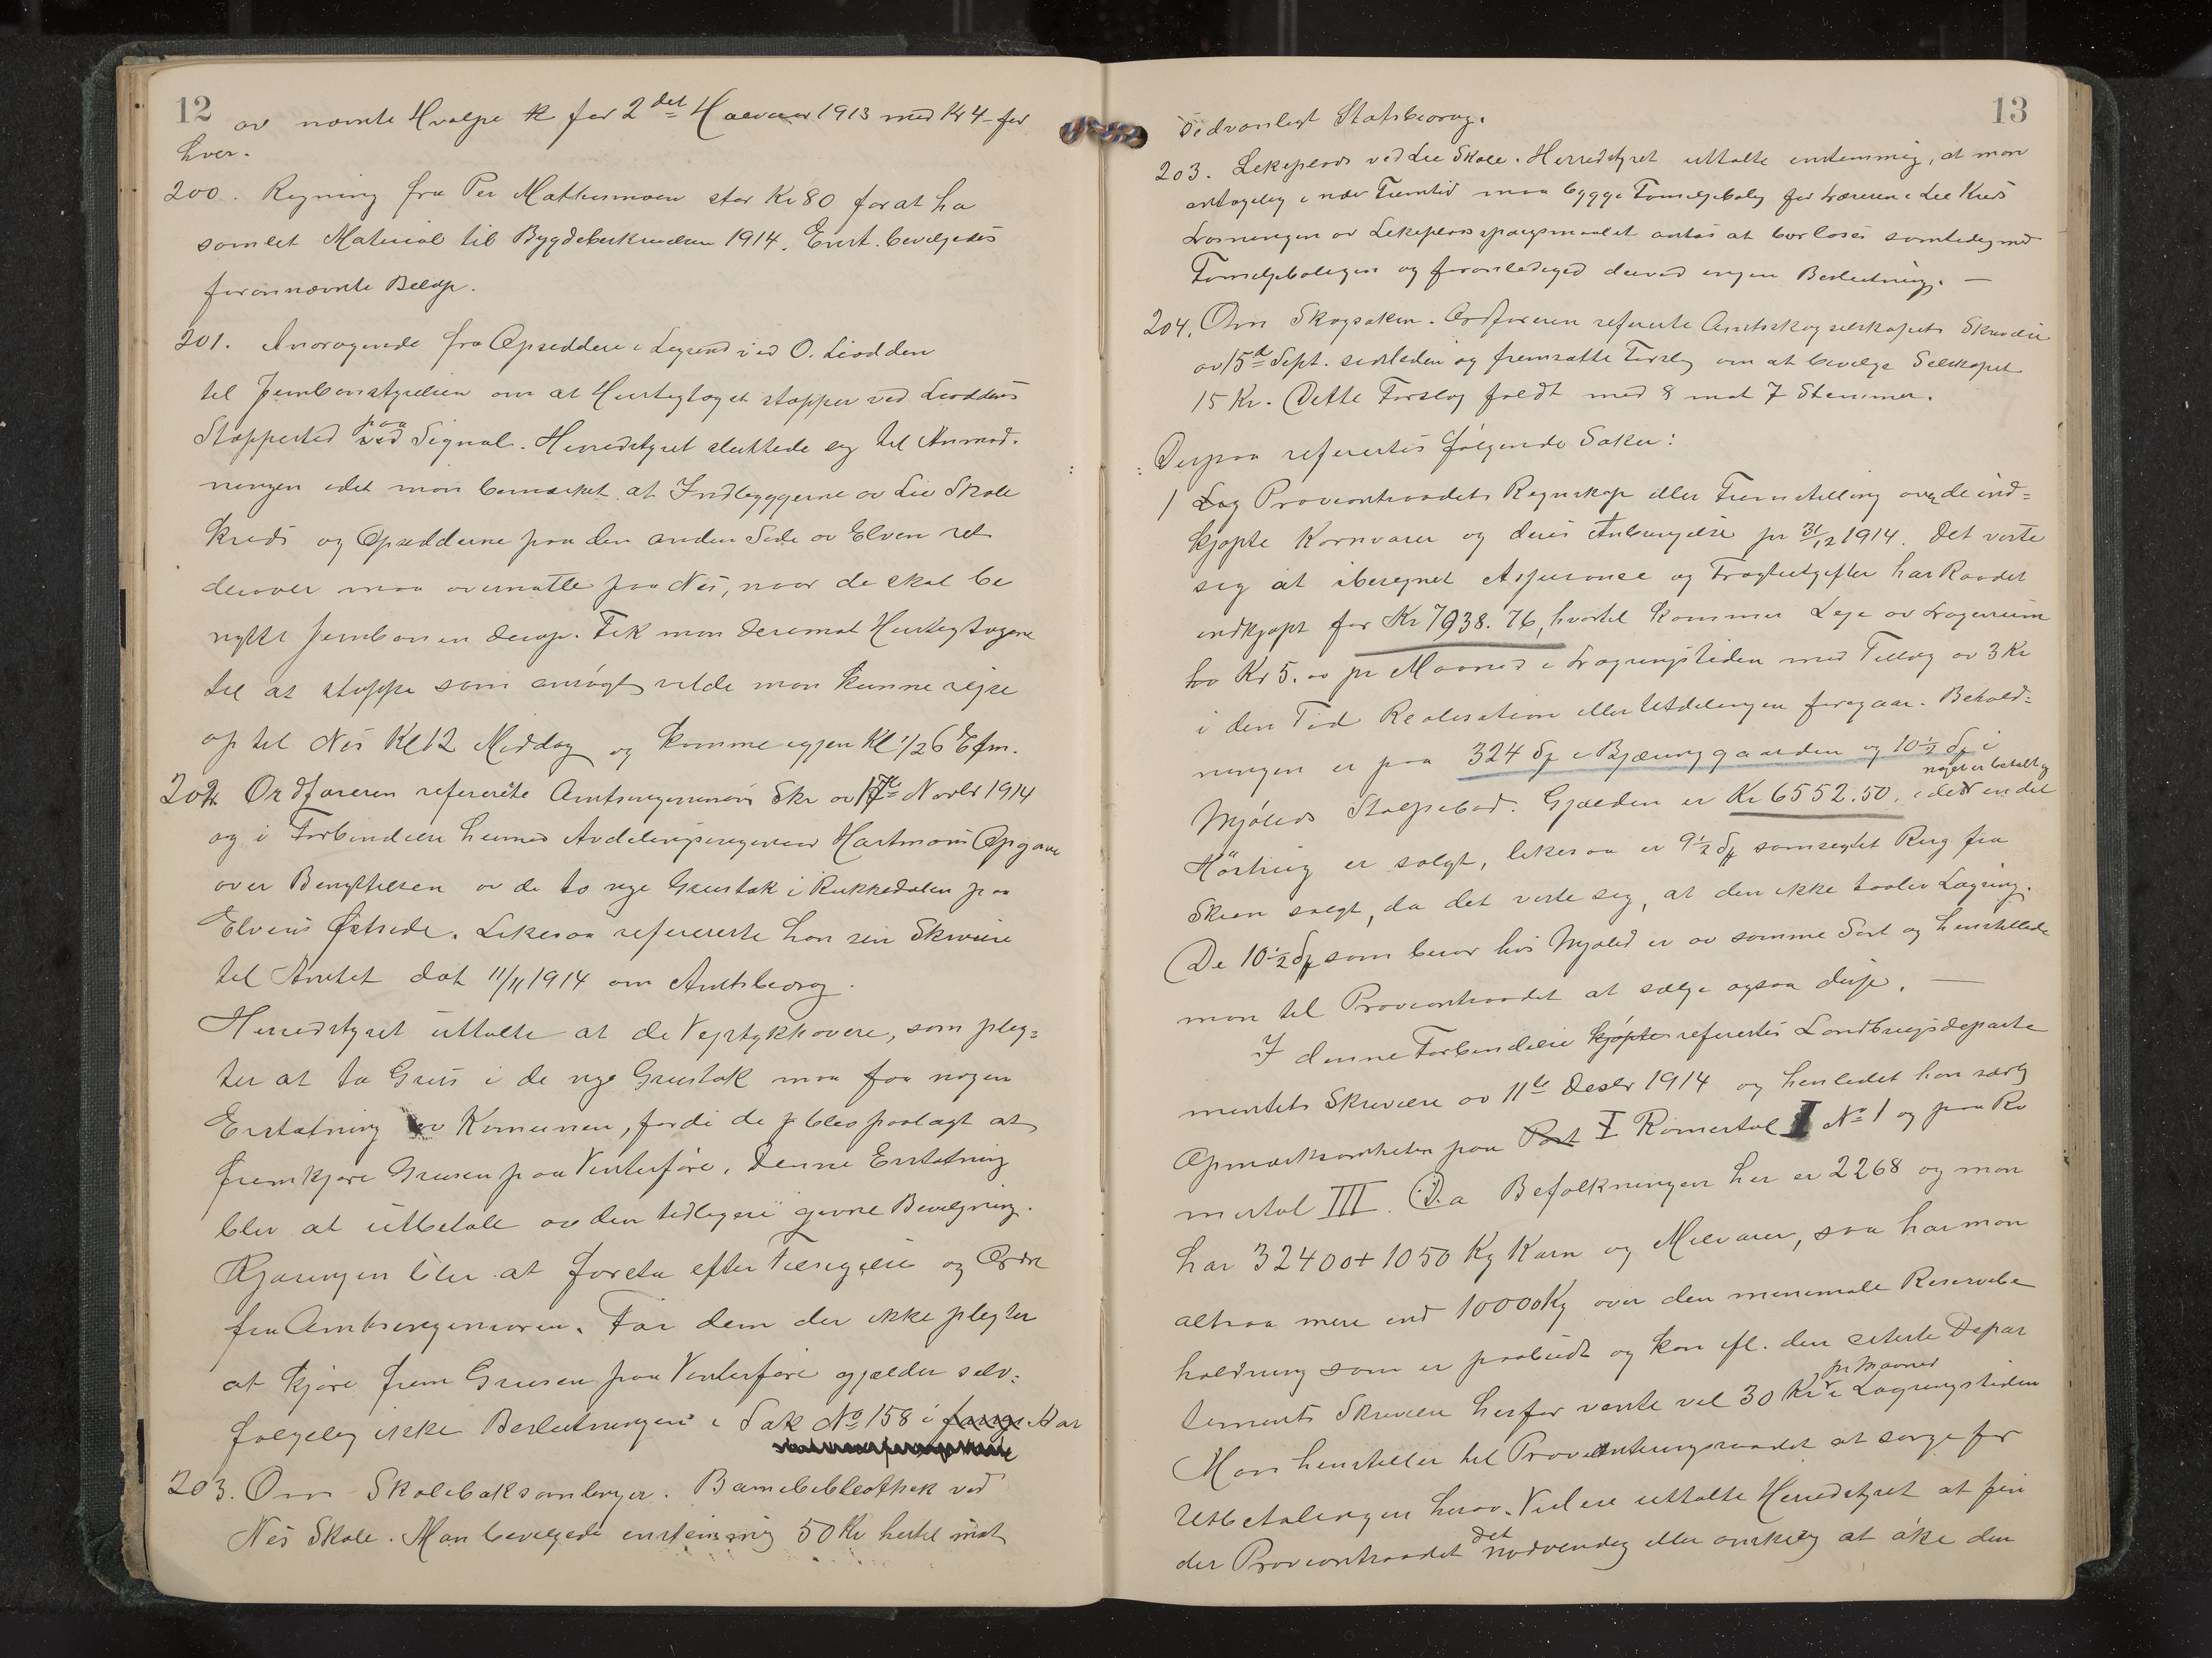 12
av nævnte Hvalpe for 2det Halvaar 1913 med Kr 4- for
hver.
200. Regning fra Per Mathismoen stor Kr 80 for at ha
samlet Material til Bygdebeskrivelsen 1914. Enst. bevilgedes
forannævnte Beløp.
201. Andragende fra Opsiddere i Legrend ved O. Liodden
til Jernbanestyrelsen om at Hurtigtoget stopper ved Lioddens
Stoppested ved paa Signal. Herredstyret sluttede sig til Anmod-
ningen idet man bemærket at Indbyggerne av Lie Skole
kreds og Opsidderne paa den anden Side av Elven ret
derover maa overnatte paa Nes, naar de skal be
nytte Jernbanen derop. Fik man derimot Hurtigtogene
til at stoppe som ansøgt vilde man kunne rejse
op til Nes Kl 12 Middag og komme igjen Kl 1/2 6 Efm.
202. Ordføreren refererte Amtsingeniørens Skr av 17de Novbr 1914
og i Forbindelse hermed Avdelingsingeniør Hartmans Opgave
over Benyttelsen av de to nye Grustak i Rukkedalen paa
Elvens Østside. Likesaa refererte han sin Skrivelse
til Amtet dat 11/11 1914 om Amtsbidrag.
Herredstyret uttalte at de Vejstykkhavere, som plig-
ter at ta Grus i de nye Grustak maa faa nogen
Erstatning av Komunen, fordi de blev paalagt at
fremkjøre Grusen paa Vinterføre. Denne Erstatning
blev at utbetale av den tidligere givne Bevilgning.
Kjøringen blir at foreta efter Tilsigelse og Ordre
fra Amtsingeniøren. For dem der ikke pligter
at kjøre frem Grusen paa Vinterføre gjælder selv-
følgelig ikke Beslutningen i Sak No 158 i forrige Aar
203. Om Skoleboksamlinger. Barnebibliothek ved
Nes Skole. Man bevilgede enstemmig 50 Kr hertil mot
13
sedvanligt Statsbidrag.
203. Lekeplads ved Lie Skole. Herredstyret uttalte enstemmig, at man
antagelig i nær Fremtid maa bygge Familjebolig for Læreren i Lie Kreds
Løsningen av Lekeplassspørgsmaalet antas at bør løses samtidig med
Familjeboligen og foranlediged derved ingen Beslutning. —
204. Om Skogsaken. Ordføreren refererte Amtsskogselskapets Skrivelse
av 15de Sept. sidstleden og fremsatte Forslag om at bevilge Selskapet
15 Kr. Dette Forslag faldt med 8 mot 7 Stemmer.
Derpaa refererte følgende Saker:
1 Lag Proviantraadets Regnskap eller Fremstilling over de ind-
kjøpte Kornvarer og deres Anbringelse pr 31/12 1914. Det viste
seg at iberegnet Assurance og Fragtutgifter har Raadet
indkjøpt for Kr 7938.76, hvortil kommer Leje av Lagerrum
ho Kr 5.00 pr Maaned i Lagringstiden med Tillæg av 3 Kr
i den Tid Realisation eller Utdelingen foregaar. Behold-
ningen er paa 324 Sæ i Bjøringgaarden og 10 1/2 Sæ i
Mjølids Stolpebod. Gjælden er Kr 6552.50. idet noget er betalt og en del
Hårtrug er solgt, likesaa er 9 1/2 Sæ sammalet Rug fra
Skien solgt, da det viste seg, at den ikke taaler Lagring.
De 10 1/2 Sæ som beror hos Mjølid er av samme Sort og henstillede
man til Proviantraadet at sælge ogsaa disse. —
I denne Forbindelse kjøpte refererte Landbrugsdeparte
mentets Skrivelse av 11te Desbr 1914 og henledet han særlig
Opmærksomheten paa Post I Romertal I No 1 og paa Ro
mertal III. Da Befolkningen her er 2268 og man
har 32400 + 1050 Kg Korn og Melvarer, saa har man
altsaa mere end 10000 Kg over den minimale Reservebe
holdning som er paabudt og kan ifl. den siterte Depar
tements Skrivelse herfor vente vel 30 Kr pr Maaned i Lagringstiden
Man henstiller til Provianteringsraadet at sørge for
Utbetalingen herav. Videre uttalte Herredstyret at fin
der Proviantraadet det nødvendig eller ønskelig at øke den